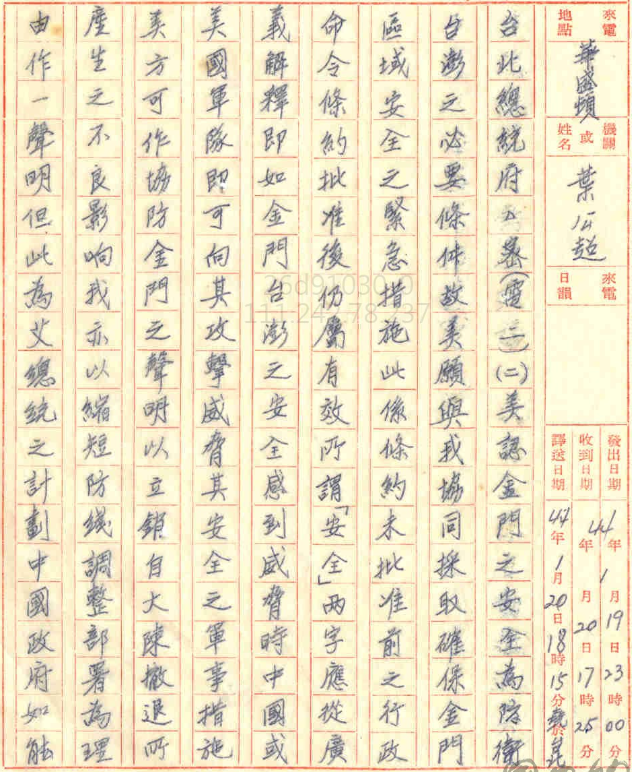 來電地點 華盛頓
機關或姓名 葉公超
來電日韻
發出日期 44年1月19日23時00分
收到日期 44年1月20日17時25分
譯送日期 44年1月20日18時15分
台北總統府(電二)(二)美認金門之安全為防衛
台澎之必要條件故美願與我協同採取確保金門
區域安全之緊急措施此係條約未批准前之行政
命令條約批准後仍屬有效所謂「安全」兩字應從廣
義解釋即如金門台澎之安全感到威脅時中國或
美國軍隊即可向其攻擊威脅其安全之軍事措施
美方可作協防金門之聲明以立銷自大陳撤退所
產生之不良影响我亦以縮短防綫調整部署為理
由作一聲明但此為艾總統之計劃中國政府如能